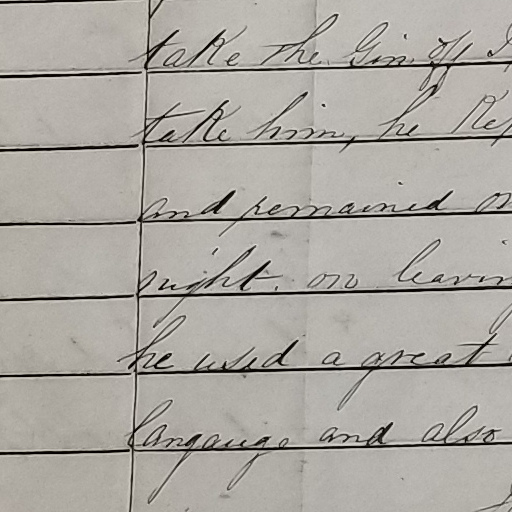 take the Gin off
take him, he
and remained
night. on
he used a great
langauge and also